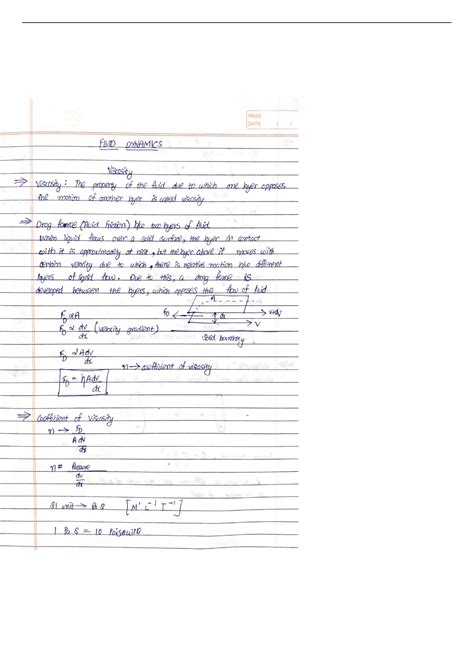 PAGE
DATE / /
FLUID DYNAMICS
Viscosity
⇒ Viscosity : The property of the fluid due to which one layer opposes
the motion of another layer is called viscosity
⇒ Drag force (fluid friction) b/w two layers of fluid.
When liquid flows over a solid surface, the layer in contact
with it is approximately at rest, but the layer above it moves with
certain velocity due to which, there is relative motion b/w different
layers of liquid flow. Due to this, a drag force is
developed between the layers, which opposes the flow of fluid.
A
F_D ∝ A
F_D dx v+dv
F_D ∝ dv/dx (velocity gradient)
V
Solid boundary
F_D ∝ A dv/dx
η → coefficient of viscosity
F_D = η A dv/dx
⇒ Coefficient of Viscosity
η → F_D / A dv/dx
η = / dv/dx
SI unit → Pa S [M¹ L⁻¹ T⁻¹]
1 Pa S = 10